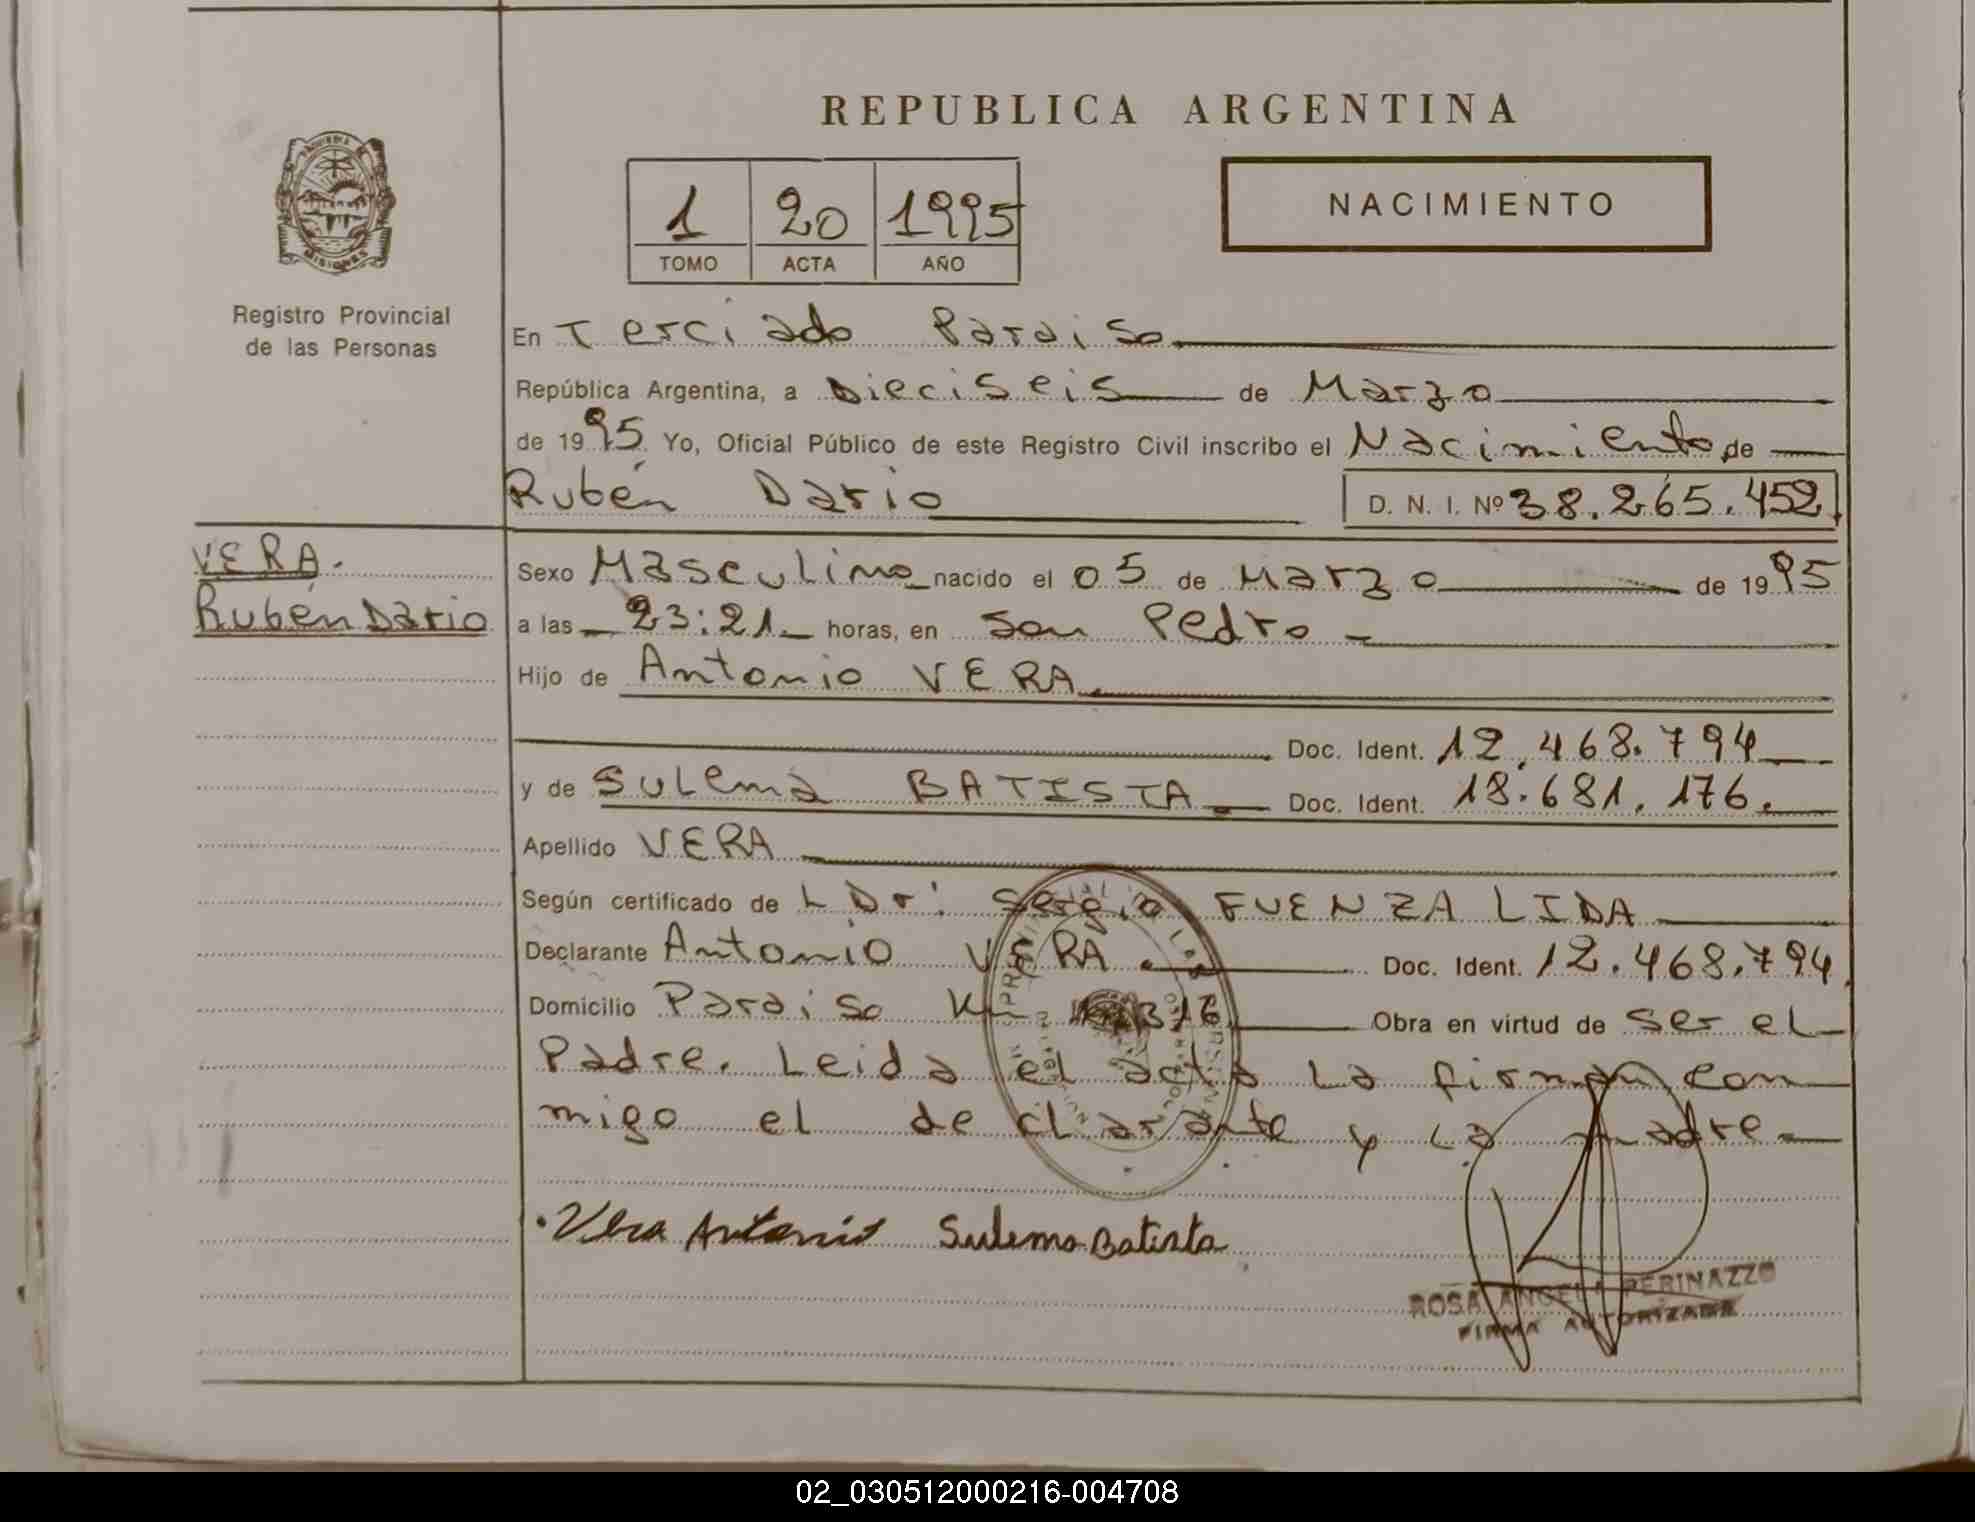 REPUBLICA ARGENTINA
1 20 1995
TOMO ACTA AÑO
NACIMIENTO
MISIONES
Registro Provincial
de las Personas
En Terciado Paraiso
República Argentina, a Dieciseis de Marzo
de 1995 Yo, Oficial Público de este Registro Civil inscribo el Nacimiento de
Rubén Dario D. N. I. Nº 38.265.452
VERA.
Rubén Dario
Sexo Masculino nacido el 05 de Marzo de 1995
a las 23:21 horas, en San Pedro
Hijo de Antonio VERA
Doc. Ident. 12.468.794
y de Sulema BATISTA Doc. Ident. 18.681.176.
Apellido VERA
Según certificado de L Dr: Sergio FUENZALIDA
Declarante Antonio VERA. Doc. Ident. 12.468.794
Domicilio Paraiso Obra en virtud de ser el
Padre. Leida el acta la firman con
migo el declarante y la madre
Vera Antonio Sulema Batista
ROSA ANGELA PERINAZZO
FIRMA AUTORIZADA
02_030512000216-004708